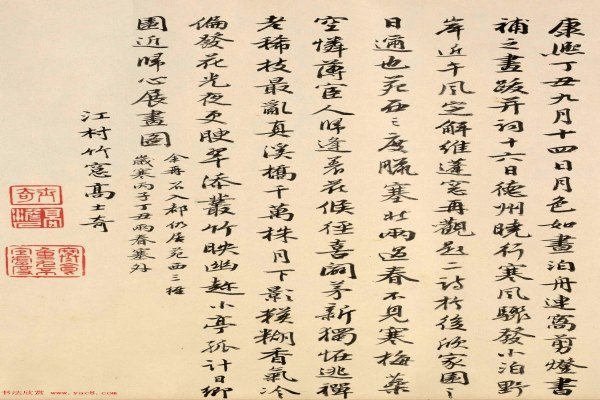 康熙丁丑九月十四日月色如晝泊舟連窩剪燈書
補之畫跋并詞十六日德州曉行寒風驟發小泊野
岸近午風定解維蓬窓再觀題二詩於後欣家園之
日邇也苑西三度臘塞北兩過春不見寒梅蘂
空憐薄宦人歸逢著花候徑喜闢茅新獨怪逃禪
老稀枝最亂真溪橋千萬株月下影模糊香氣冷
偏發花光夜更腴翠添叢竹映幽趣小亭孤計日鄉
園近歸心展畫圖
余再召入都仍居苑西三
歲寒丙子丁丑兩春塞外
江村竹窓高士奇
书法欣赏 www.yac8.com